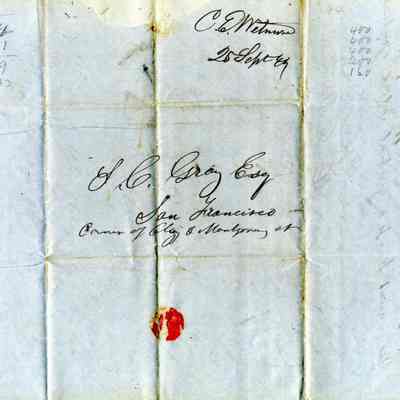 C. E. Wetmore
25 Sept 49
400
400
400
400
120
S. C. Gray Esq
San Francisco
Corner of Clay & Montgomery st